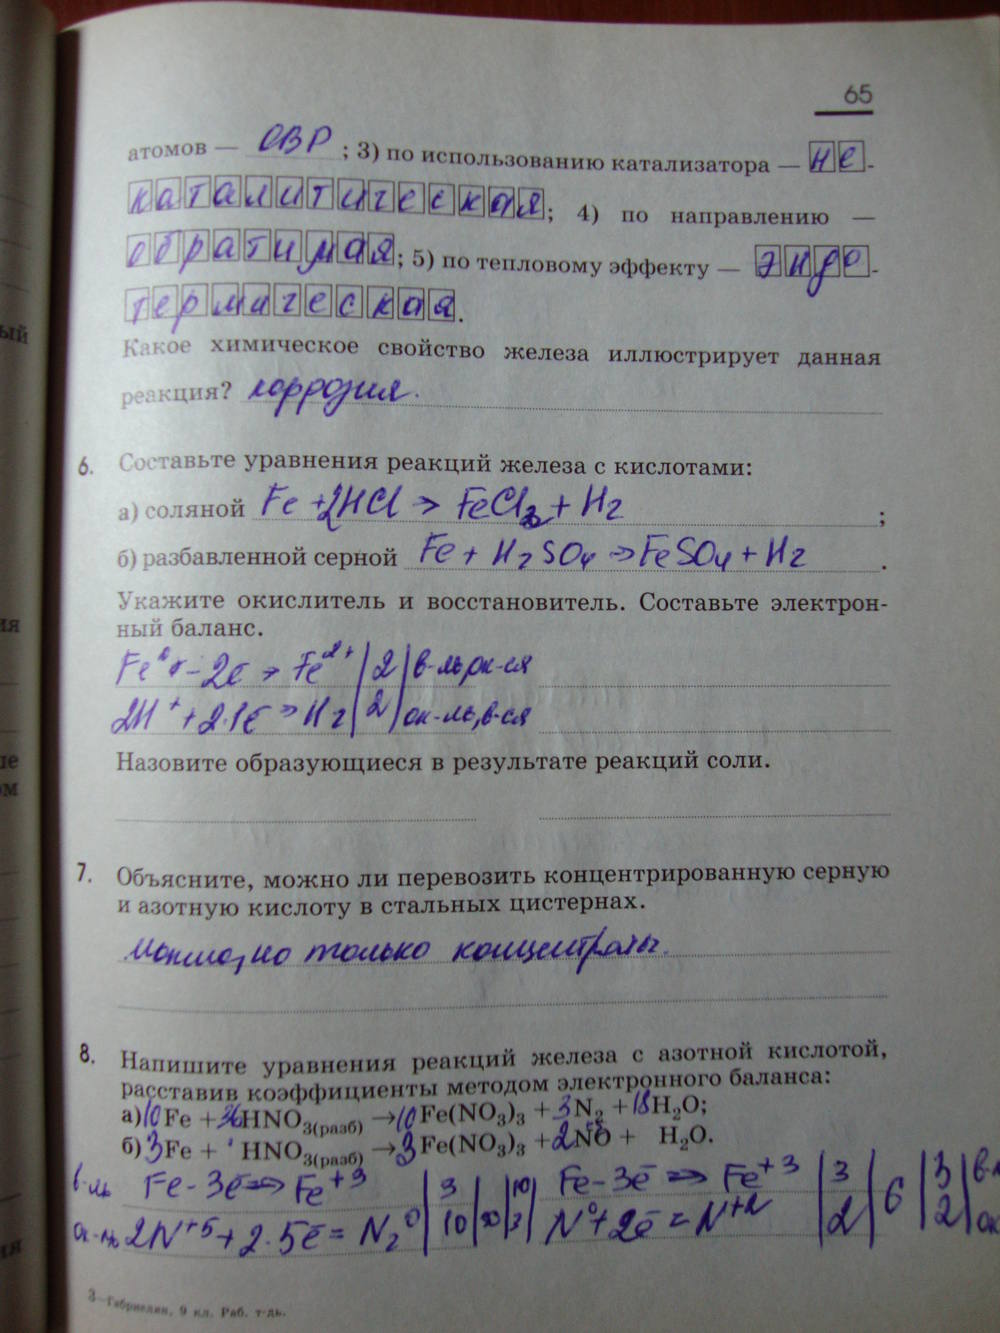 65
атомов — ОВР ; 3) по использованию катализатора — не-
каталитическая; 4) по направлению —
обратимая; 5) по тепловому эффекту — эндо-
термическая.
Какое химическое свойство железа иллюстрирует данная
реакция? коррозия.
6. Составьте уравнения реакций железа с кислотами:
а) соляной Fe + 2HCl → FeCl2 + H2 ;
б) разбавленной серной Fe + H2SO4 → FeSO4 + H2 .
Укажите окислитель и восстановитель. Составьте электрон-
ный баланс.
Fe0 - 2ē → Fe2+ | 2 | в-ль, ок-ся
2H+ + 2·1ē → H2 | 2 | ок-ль, в-ся
Назовите образующиеся в результате реакций соли.
7. Объясните, можно ли перевозить концентрированную серную
и азотную кислоту в стальных цистернах.
можно, но только
8. Напишите уравнения реакций железа с азотной кислотой,
расставив коэффициенты методом электронного баланса:
а) 10Fe + 36HNO3(разб) → 10Fe(NO3)3 + 3N2 + 18H2O;
б) 3Fe + HNO3(разб) → 3Fe(NO3)3 + 2NO + H2O.
в-ль Fe - 3ē → Fe+3 | 3 | | 10 | Fe - 3ē → Fe+3 | 3 | 6 | 3 |
ок-ль 2N+5 + 2·5ē = N20 | 10 | 30 | 3 | + 2ē = N+2 | 2 | | 2 | ок
3—Габриелян, 9 кл. Раб. т-дь.
ый
ия
ом